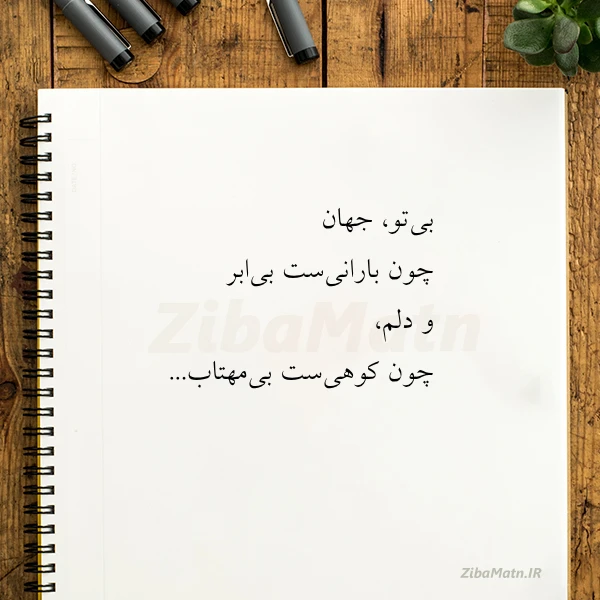 بی‌تو، جهان
چون بارانی‌ست بی‌ابر
و دلم،
چون کوهی‌ست بی‌مهتاب...
ZibaMatn
ZibaMatn.IR